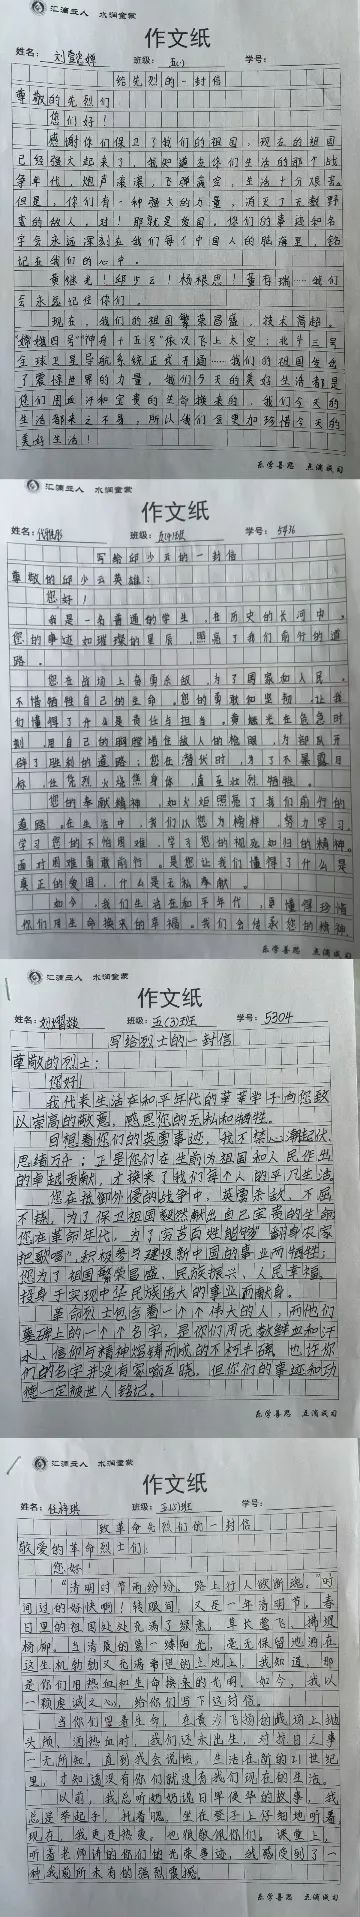 汇滴立人 水润童蒙
作文纸
姓名： 班级：五(1) 学号：
给先烈的一封信
尊敬的先烈们
您们好！
感谢你们保卫了我们的祖国，现在的祖国
已经强大起来了，我知道在你们生活的那个战
争年代，炮声滚滚，飞弹 空，生活十分艰苦。
但是，你们有一种强大的力量，消灭了无数野
蛮的敌人，对！那就是爱国。你们的事迹和名
字会永远深刻在我们每个中国人的脑海里，铭
记在我们的心中。
黄继光！邱少云！杨根思！董存瑞……我们
会永远记住你们。
现在，我们的祖国繁荣昌盛，技术高超。
“嫦娥四号”“神舟十五号”依次飞上太空；北斗三号
全球卫星导航系统正式开通……我们的祖国发出
了震惊世界的力量，我们今天的美好生活都是
您们用血汗和宝贵的生命换来的，我们今天的
生活都来之不易，所以我们会更加珍惜今天的
美好生活！
乐学善思 点滴成习
汇滴立人 水润童蒙
作文纸
姓名： 班级： 学号：
写给邱少云的一封信
尊敬的邱少云英雄：
您好！
我是一名普通的学生，在历史的长河中，
您的事迹如璀璨的星辰，照亮了我们前行的道
路。
您在战场上奋勇杀敌，为了国家和人民，
不惜牺牲自己的生命。您的勇敢和坚韧，让我
们懂得了什么是责任与担当。黄继光在危急时
刻，用自己的胸膛堵住敌人的枪眼，为部队开
辟了胜利的道路；您在潜伏时，为了不暴露目
标，任凭烈火烧焦身体，直至壮烈牺牲。
您的奉献精神，如火炬照亮了我们前行的
道路。在生活中，我们以您为榜样，努力学习，
学习您的不怕困难，学习您的视死如归的精神。
面对困难勇敢前行。是您让我们懂得了什么是
真正的爱国，什么是无私奉献。
如今，我们生活在和平年代，更懂得珍惜
你们用生命换来的幸福。我们会传承您的精神
乐学善思 点滴成习
汇滴立人 水润童蒙
作文纸
姓名： 班级：五(3)班 学号：5304
写给烈士的一封信
尊敬的烈士：
您好！
我代表生活在和平年代的莘莘学子向您致
以崇高的敬意，感恩你的无私和牺牲。
回想着你们的英勇事迹，我不禁心潮起伏、
思绪万千；正是你们在生前为祖国和人民作出
的卓越贡献，才换来了我们每个人的平凡生活。
您在抵御外侵的战争中，英勇杀敌、不屈
不挠，为了保卫祖国毅然献出自己宝贵的生命
您在革命年代，为了穷苦百姓能够“翻身农家
把歌唱”，积极参与建设新中国的事业而牺牲；
您为了祖国繁荣昌盛、民族振兴、人民幸福，
投身于实现中华民族伟大的事业而献身。
革命烈士包含着一个个伟大的人，而他们
墓碑上的一个个名字，是你们用无数鲜血和汗
水、信仰与精神熔铸而成的不朽丰碑。也许你
们的名字并没有家喻户晓，但你们的事迹和功
德一定被世人铭记。
乐学善思 点滴成习
汇滴立人 水润童蒙
作文纸
姓名：任梓琪 班级：五(5)班 学号：
致革命先烈们的一封信
敬爱的革命烈士们：
您好！
“清明时节雨纷纷，路上行人欲断魂。”时
间过的好快啊！转眼间，又是一年清明节。春
日里的祖国处处充满了绿意，草长莺飞、拂堤
杨柳。当清晨的第一缕阳光，毫无保留地洒在
这生机勃勃又充满希望的土地上，我知道，那
是你们用热血和生命换来的光明。如今，我以
一颗虔诚之心，给你们写下这封信。
当你们冒着生命，在黄沙飞扬的战场上抛
头颅、洒热血时，我们还未出生，对抗日之事
一无所知。直到我会说话，生活在新的21世纪
里，才知道没有你们就没有我们现在的生活。
以前，我总听奶奶说日军侵华的故事，我
总是举起手，托着腮，坐在凳子上仔细地听着，
现在，我更是热爱，也很敬佩你们。课堂上，
听着老师讲的你们的光荣事迹，我感受到了一
种我前所未有的强烈震撼。
乐学善思 点滴成习